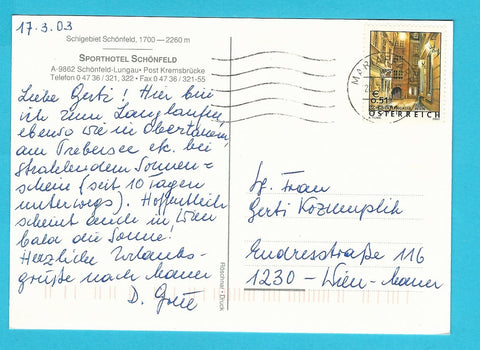 17.3.03
Schigebiet Schönfeld, 1700 — 2260 m
SPORTHOTEL SCHÖNFELD
A-9862 Schönfeld-Lungau • Post Kremsbrücke
Telefon 0 47 36 / 321, 322 • Fax 0 47 36 / 321-55
Liebe Gerti! Hier bin
ich zum Langlaufen
ebenso wie in Obertauern,
am Prebersee etc. bei
strahlendem Sonnen=
schein (seit 10 Tagen
unterwegs). Hoffentlich
scheint auch in Wien
bald die Sonne.
Herzliche Urlaubs-
grüße nach Mauer
D.
Röschnar • Druck
€ 0,51
ÖSTERREICH
Sg. Frau
Gerti Kozumplik
Endresstraße 116
1230 – Wien-Mauer